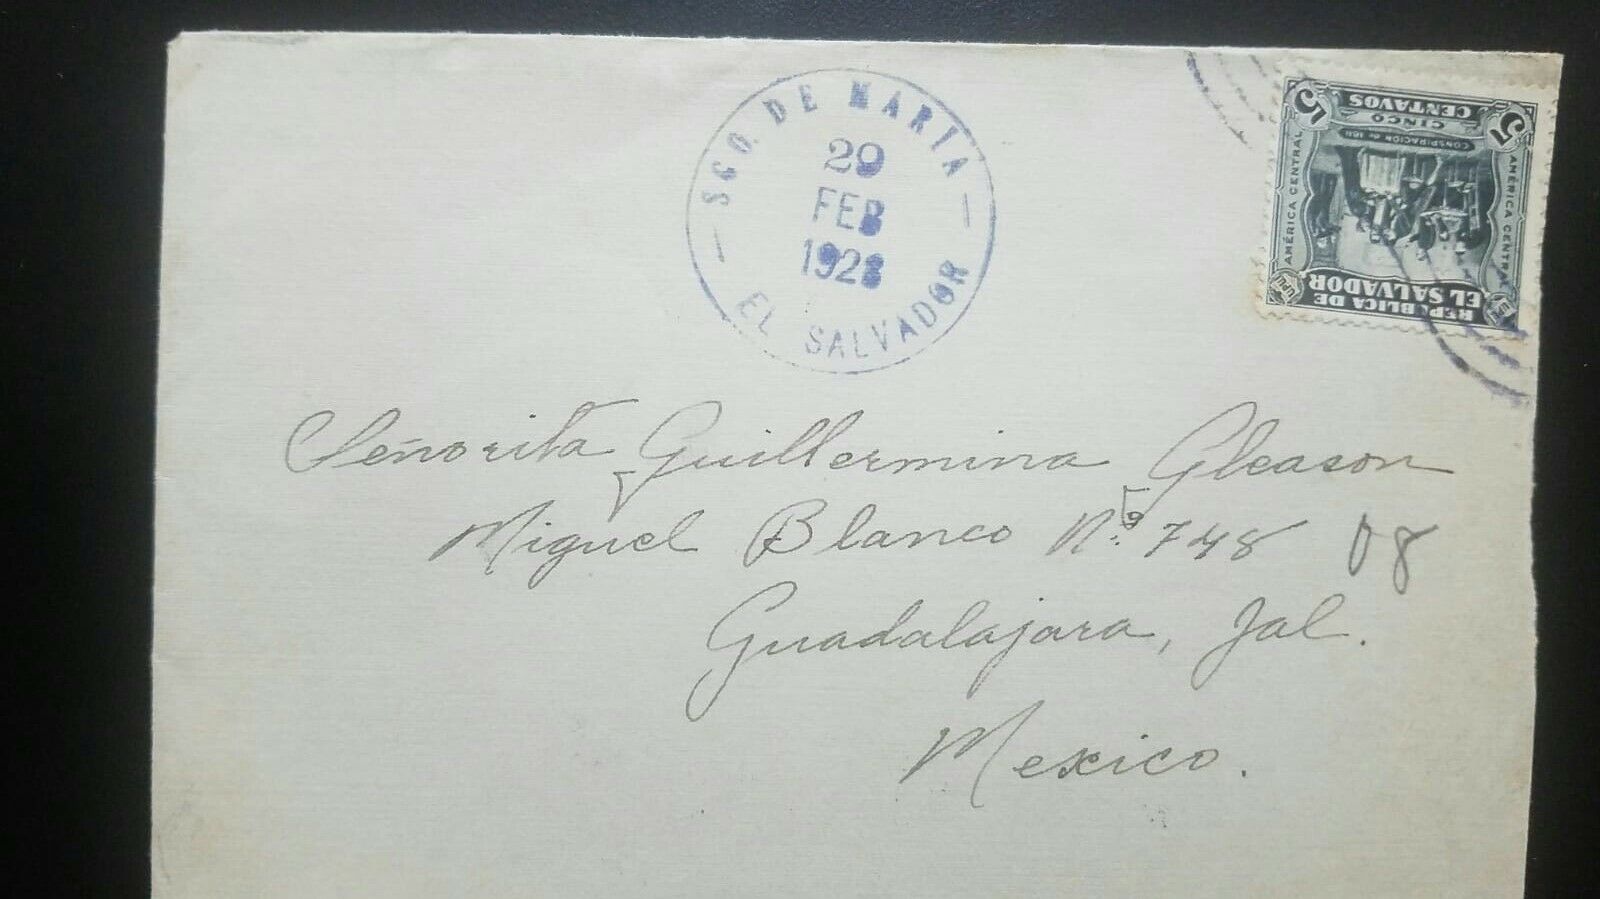 SGO. DE MARIA
29
FEB
1928
EL SALVADOR
REPUBLICA DE
EL SALVADOR
AMÉRICA CENTRAL
AMÉRICA CENTRAL
CONSPIRACIÓN de 1811
CINCO
CENTAVOS
5
5
Señorita Guillermina Gleason
Miguel Blanco Nº 748 08
Guadalajara, Jal.
Mexico.